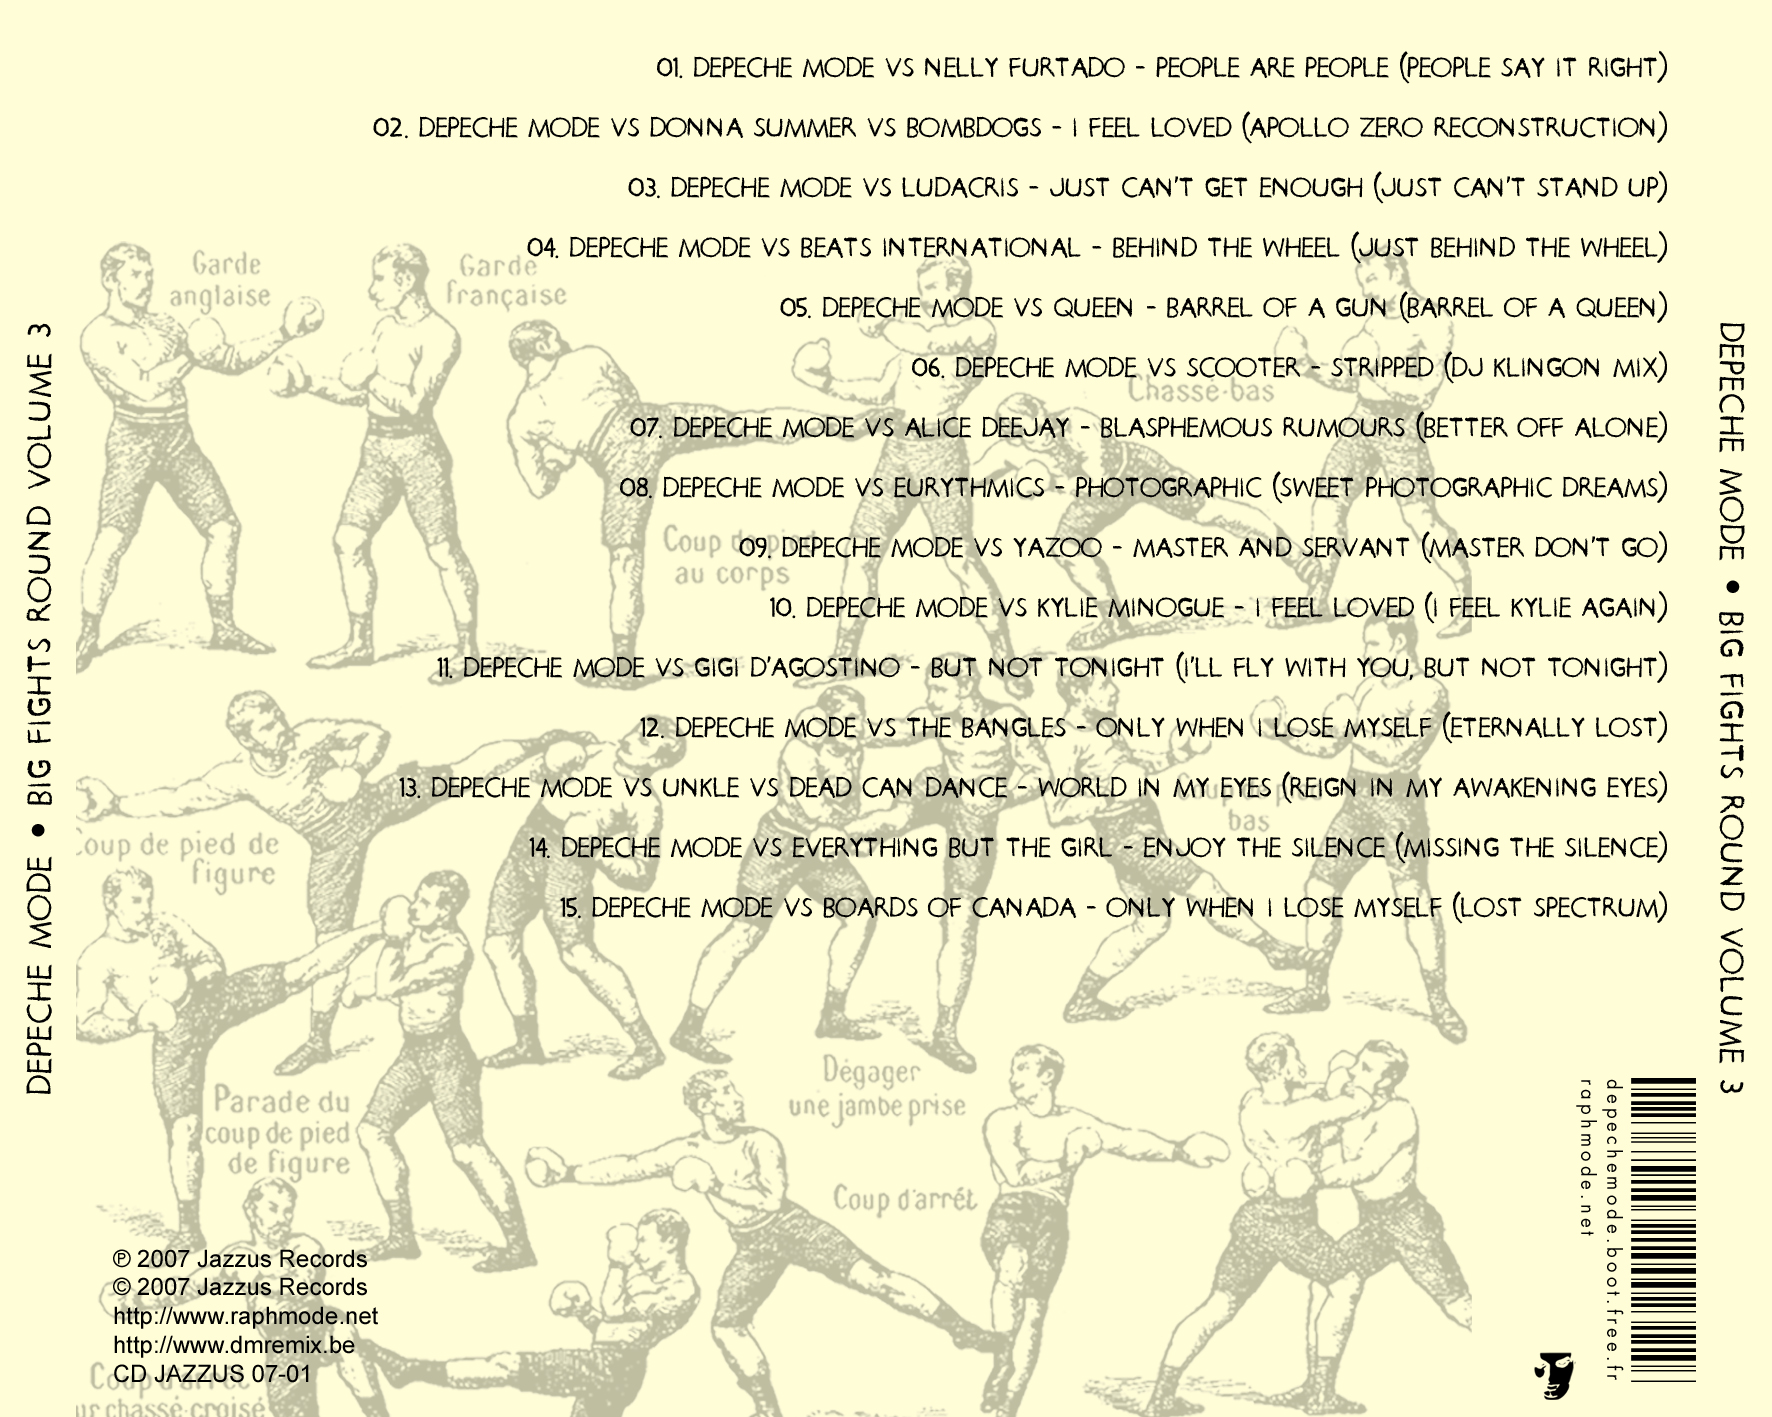 01. DEPECHE MODE VS NELLY FURTADO - PEOPLE ARE PEOPLE (PEOPLE SAY IT RIGHT)
02. DEPECHE MODE VS DONNA SUMMER VS BOMBDOGS - I FEEL LOVED (APOLLO ZERO RECONSTRUCTION)
03. DEPECHE MODE VS LUDACRIS - JUST CAN'T GET ENOUGH (JUST CAN'T STAND UP)
04. DEPECHE MODE VS BEATS INTERNATIONAL - BEHIND THE WHEEL (JUST BEHIND THE WHEEL)
05. DEPECHE MODE VS QUEEN - BARREL OF A GUN (BARREL OF A QUEEN)
06. DEPECHE MODE VS SCOOTER - STRIPPED (DJ KLINGON MIX)
07. DEPECHE MODE VS ALICE DEEJAY - BLASPHEMOUS RUMOURS (BETTER OFF ALONE)
08. DEPECHE MODE VS EURYTHMICS - PHOTOGRAPHIC (SWEET PHOTOGRAPHIC DREAMS)
09. DEPECHE MODE VS YAZOO - MASTER AND SERVANT (MASTER DON'T GO)
10. DEPECHE MODE VS KYLIE MINOGUE - I FEEL LOVED (I FEEL KYLIE AGAIN)
11. DEPECHE MODE VS GIGI D'AGOSTINO - BUT NOT TONIGHT (I'LL FLY WITH YOU, BUT NOT TONIGHT)
12. DEPECHE MODE VS THE BANGLES - ONLY WHEN I LOSE MYSELF (ETERNALLY LOST)
13. DEPECHE MODE VS UNKLE VS DEAD CAN DANCE - WORLD IN MY EYES (REIGN IN MY AWAKENING EYES)
14. DEPECHE MODE VS EVERYTHING BUT THE GIRL - ENJOY THE SILENCE (MISSING THE SILENCE)
15. DEPECHE MODE VS BOARDS OF CANADA - ONLY WHEN I LOSE MYSELF (LOST SPECTRUM)
DEPECHE MODE • BIG FIGHTS ROUND VOLUME 3
DEPECHE MODE • BIG FIGHTS ROUND VOLUME 3
Garde
anglaise
Garde
française
Chassé-bas
Coup de pied
au corps
bas
oup de pied de
figure
Parade du
coup de pied
de figure
Dégager
une jambe prise
Coup d'arrêt
℗ 2007 Jazzus Records
© 2007 Jazzus Records
http://www.raphmode.net
http://www.dmremix.be
CD JAZZUS 07-01
Coup d'arrêt
ur chassé-croisé
depechemode.boot.free.fr
raphmode.net